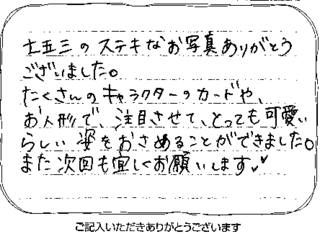 七五三のステキなお写真ありがとう
ございました。
たくさんのキャラクターのカードや、
お人形で、注目させて、とっても可愛い
らしい姿をおさめることができました。
また次回も宜しくお願いします♥
ご記入いただきありがとうございます